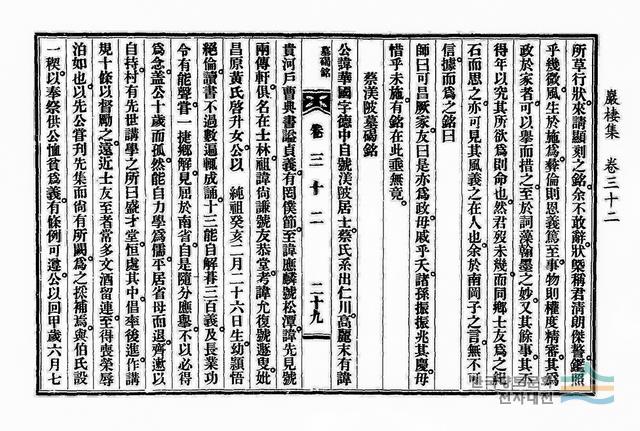 巖棲集 卷三十二
所草行狀來請顯刻之銘余不敢辭狀槩稱君淸朗傑謦鑑照
乎幾微風生於施爲彝倫則恩義篤至事物則權度精審其爲
政於家者可以擧而措之至於詞藻翰墨之妙又其餘事其不
得年以究其所欲爲則命也然君歿未幾而同鄕士友爲之紀
石而思之亦可見其風義之在人也余於南岡子之言無不可
信據而爲之銘曰
師曰可昌厥家友曰是亦爲政毋戚乎夭諸孫振振兆其慶毋
惜乎未施有銘在此垂無竟
蔡渼陂墓碣銘
公諱華國字德中自號渼陂居士蔡氏系出仁川高麗末有諱
墓碣銘
卷三十二
二十九
貴河戶曹典書謚貞義有罔僕節至諱應麟號松潭諱先見號
兩傳軒俱名在士林祖諱尙謙號友恭堂考諱允復號遯叟妣
昌原黃氏啓升女公以 純祖癸亥二月二十六日生幼穎悟
絕倫讀書不過數遍輒成誦十三能自解碁三百義及長業功
令有能聲嘗一捷鄕解見屈於南省自是隨分應擧不以必得
爲念盖公十歲而孤然能自力學爲儒平居省母而退齊遬以
自持村有先世講學之所曰盛才堂恒處其中倡率後進作講
規十條以督勵之遠近士友至者常多文酒留連至得喪榮辱
泊如也以先公嘗刋先集而尙有所闕爲之採補焉與伯氏設
一稧以奉祭供公恤貧爲義有條例可遵公以回甲歲六月七
한국학문문화
전자대전